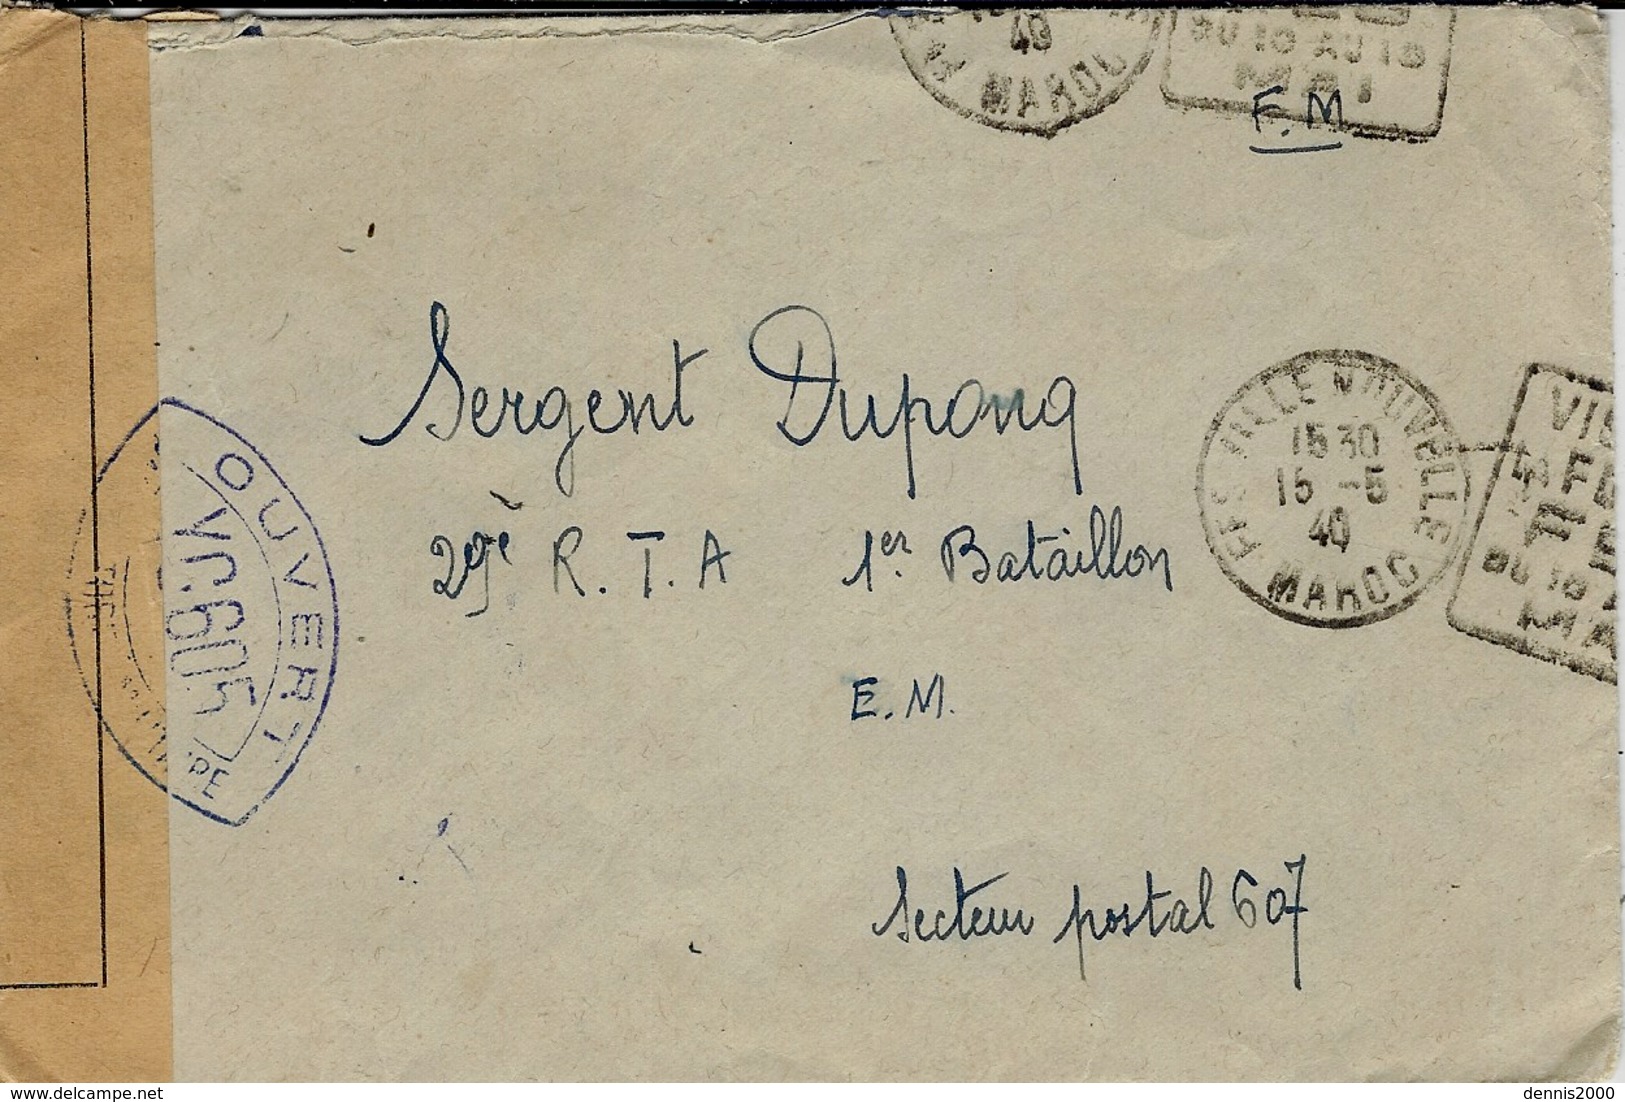 40
MAROC
DU 10 AU 18
MAI
F.M
Sergent Dupong
29è R.T.A 1er Bataillon
E.M.
Secteur postal 607
FES VILLE NOUVELLE
15 30
15 -5
40
MAROC
OUVERT
VC.605
delcampe.net
dennis2000